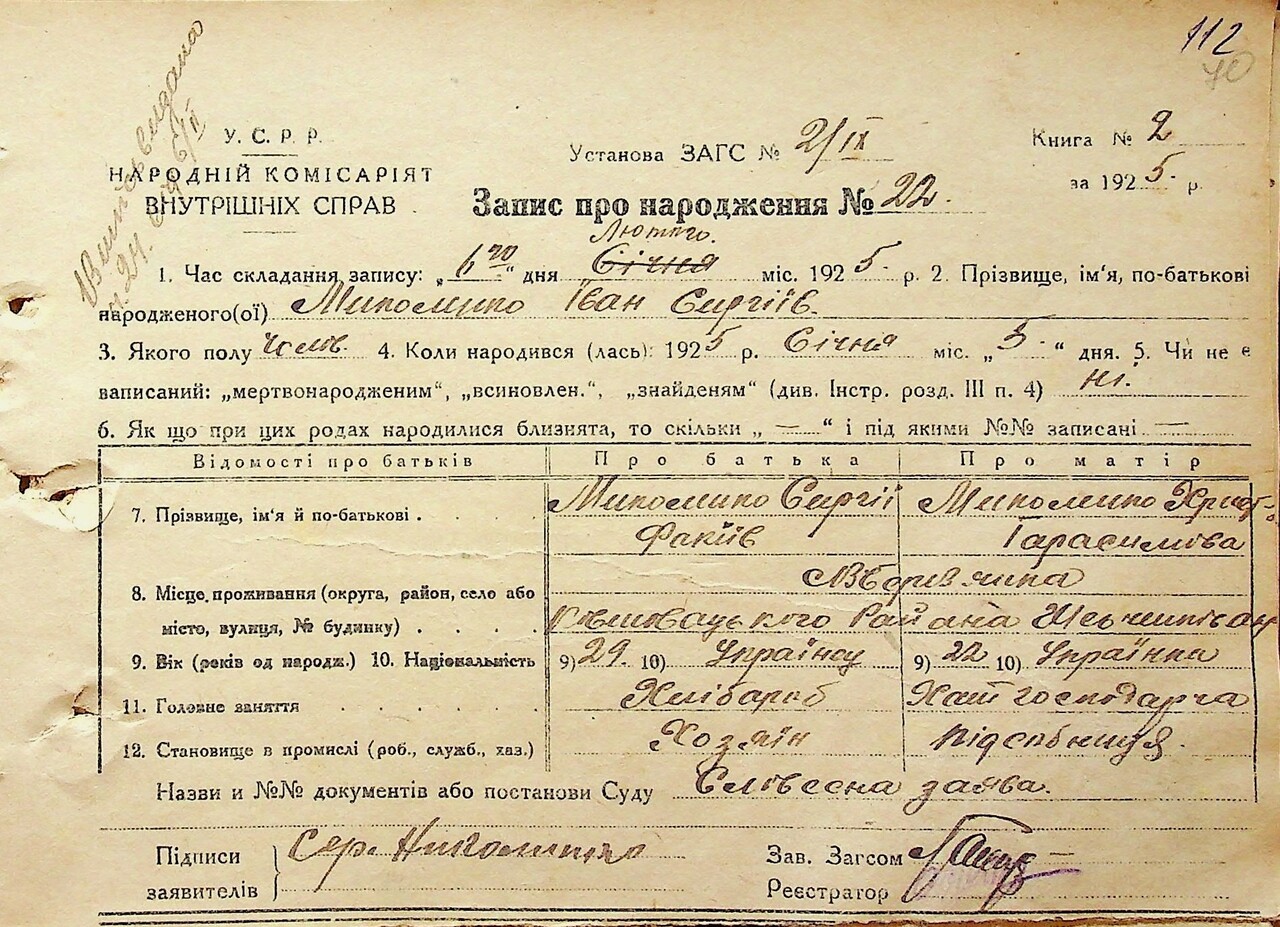 112
70
У. С. Р. Р.
НАРОДНІЙ КОМІСАРІЯТ
ВНУТРІШНІХ СПРАВ
Установа ЗАГС № 2/ІХ
Книга № 2
за 1925 р.
Запис про народження № 22.
Лютого.
1. Час складання запису: „6го“ дня Січня міс. 1925 р. 2. Прізвище, ім'я, по-батькові
народженого(ої) Іван Сиргіїв.
3. Якого полу чолов. 4. Коли народився (лась): 1925 р. Січня міс. „5“ дня. 5. Чи не є
записаний: „мертвонародженим“, „всиновлен.“, „знайденям“ (див. Інстр. розд. III п. 4) ні.
6. Як що при цих родах народилися близнята, то скільки „—“ і під якими №№ записані —
Відомості про батьків Про батька Про матір
7. Прізвище, ім'я й по-батькові . . . . Сиргій
Гарасимова
8. Місце проживання (округа, район, село або
місто, вулиця, № будинку) . . . . Району
9. Вік (років од народж.) 10. Національність 9) 29. 10) Українец 9) 22 10) Українка
11. Головне заняття . . . . . . Хлібароб Хат господарча
12. Становище в промислі (роб., служб., хаз.) Хозяїн підсобниця.
Назви и №№ документів або постанови Суду Словесна заява.
Підписи
заявителів Сер.
Зав. Загсом
Реєстратор